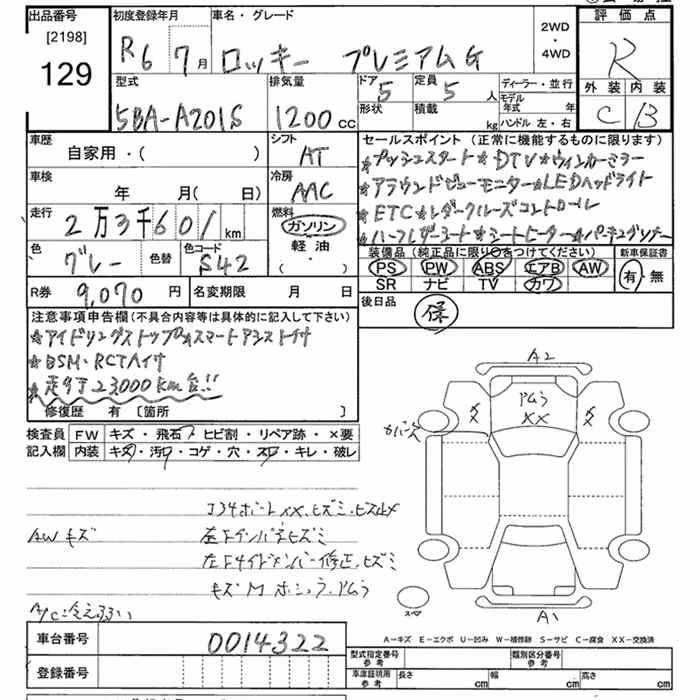 出品番号 初度登録年月 車名・グレード 2WD 評価点
[2198] R6 7月 ロッキー プレミアムG ・4WD R
129 外装 内装
型式 排気量 ドア 定員 ディーラー・並行 C B
5BA-A201S 1200cc 5 5人 モデル年式 年
形状 積載 kg ハンドル 左・右
車歴 シフト セールスポイント(正常に機能するものに限ります)
自家用・( ) AT ★プッシュスタート★DTV★ウインカーミラー
車検 冷房 ★アラウンドビューモニター★LEDヘッドライト
年 月(日) AAC ★ETC★レダークルーズコントロール
走行 燃料 ★ハーフレザーシート★シートヒーター★パーキングソナー
2万3千601km ガソリン
色 色替 色コード 軽油 装備品(純正品に限り○をつけてください) 新車保証書
グレー S42 ・( ) PS PW ABS エアB AW 有・無
SR ナビ TV カワ
R券 9,070円 名変期限 月 日 後日品 保
注意事項申告欄(不具合内容等は具体的に記入して下さい)
★アイドリングストップ★スマートアシスト
★BSM・RCTA
★走行 23,000km台!!
修復歴 有 [箇所 ]
A2
検査員 FW キズ・飛石・ヒビ割・リペア跡・×要
記入欄 内装 キズ・汚れ・コゲ・穴・スレ・キレ・破レ
XX XX XX
AWキズ
左Fインパネヒズミ
左Fサイドメンバー修正、ヒズミ
スペア
A1
A-キズ E-エクボ U-凹み W-補修跡 S-サビ C-腐食 XX-交換済
車台番号 0014322
登録番号
型式指定番号 参考 類別区分番号 参考
車庫証明用 参考 長さ cm 幅 cm 高さ cm